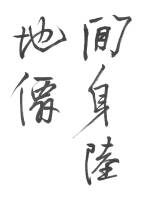 閒身陸
地僊